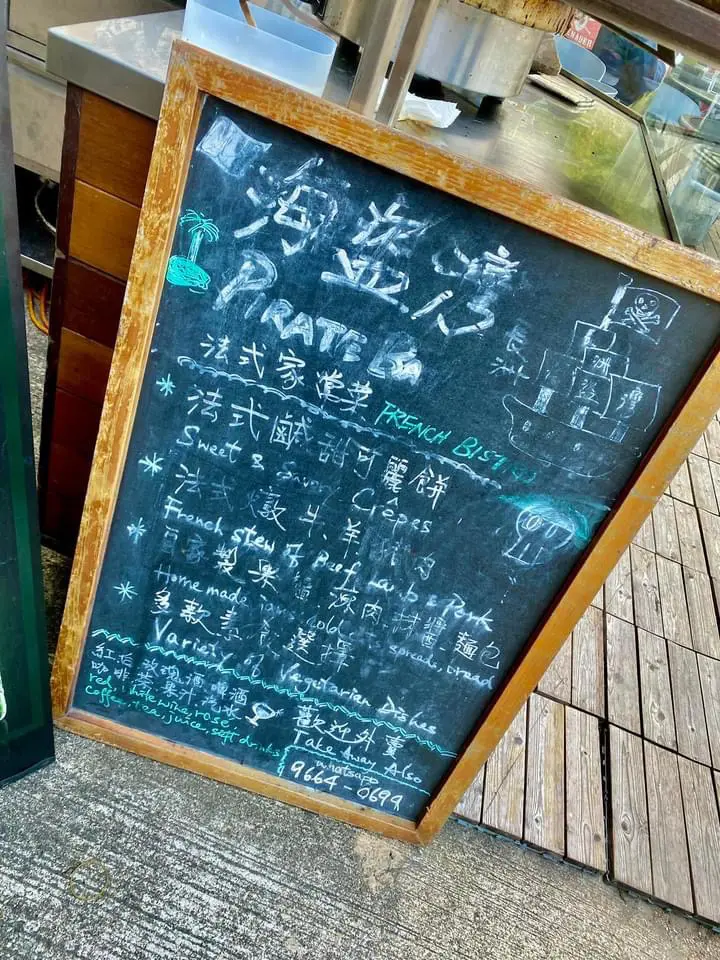 海盜灣
PIRATE BAY
長洲
洲
盜
灣
法式家常菜 FRENCH BISTRO
法式鹹甜可麗餅
Sweet & Savory Crêpes
法式燉牛、羊、豬肉
French stew of Beef, Lamb & Pork
自家製果醬、凍肉、抹醬、麵包
Home made jams, cold cuts, spreads, bread
多款素食選擇
Variety of Vegetarian Dishes
紅、白、玫瑰酒、啤酒
咖啡、茶、果汁、汽水
red, white wine, rose
coffee, tea, juice, soft drinks
歡迎外賣
Take Away Also
whatsapp
9664-0699